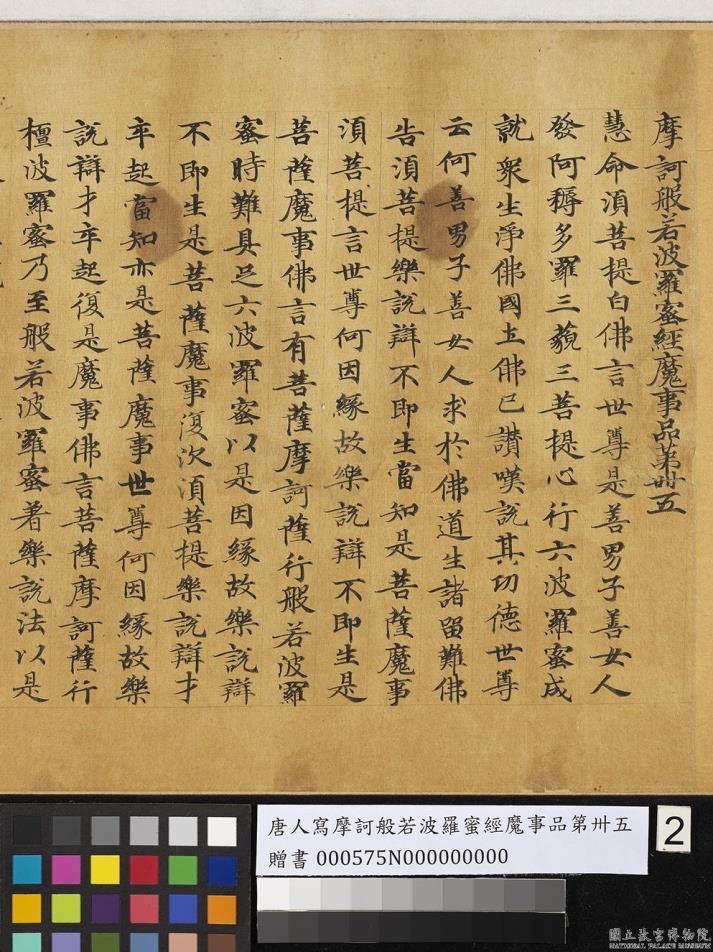 摩訶般若波羅蜜經魔事品第卌五
慧命湏菩提白佛言世尊是善男子善女人
發阿耨多羅三藐三菩提心行六波羅蜜成
就衆生淨佛國土佛已讃嘆説其功德世尊
云何善男子善女人求於佛道生諸留難佛
告湏菩提樂説辯不即生當知是菩薩魔事
湏菩提言世尊何因緣故樂説辯不即生是
菩薩魔事佛言有菩薩摩訶薩行般若波羅
蜜時難具足六波羅蜜以是因緣故樂説辯
不即生是菩薩魔事復次湏菩提樂説辯才
卒起當知亦是菩薩魔事世尊何因緣故樂
説辯才卒起復是魔事佛言菩薩摩訶薩行
檀波羅蜜乃至般若波羅蜜著樂説法以是
唐人寫摩訶般若波羅蜜經魔事品第卅五
贈書 000575N000000000
2
國立故宮博物院
NATIONAL PALACE MUSEUM